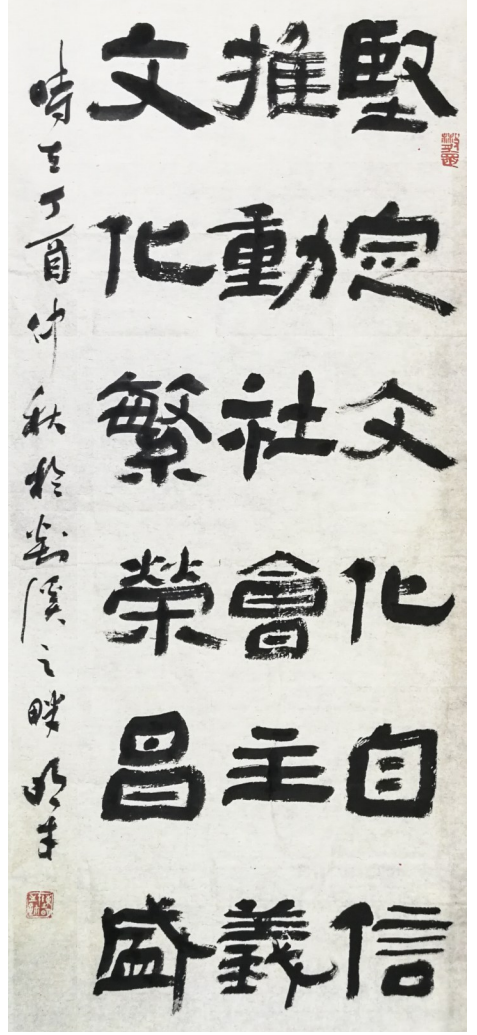 堅定文化自信
推動社會主義
文化繁榮昌盛
時在丁酉仲秋於剡溪之畔